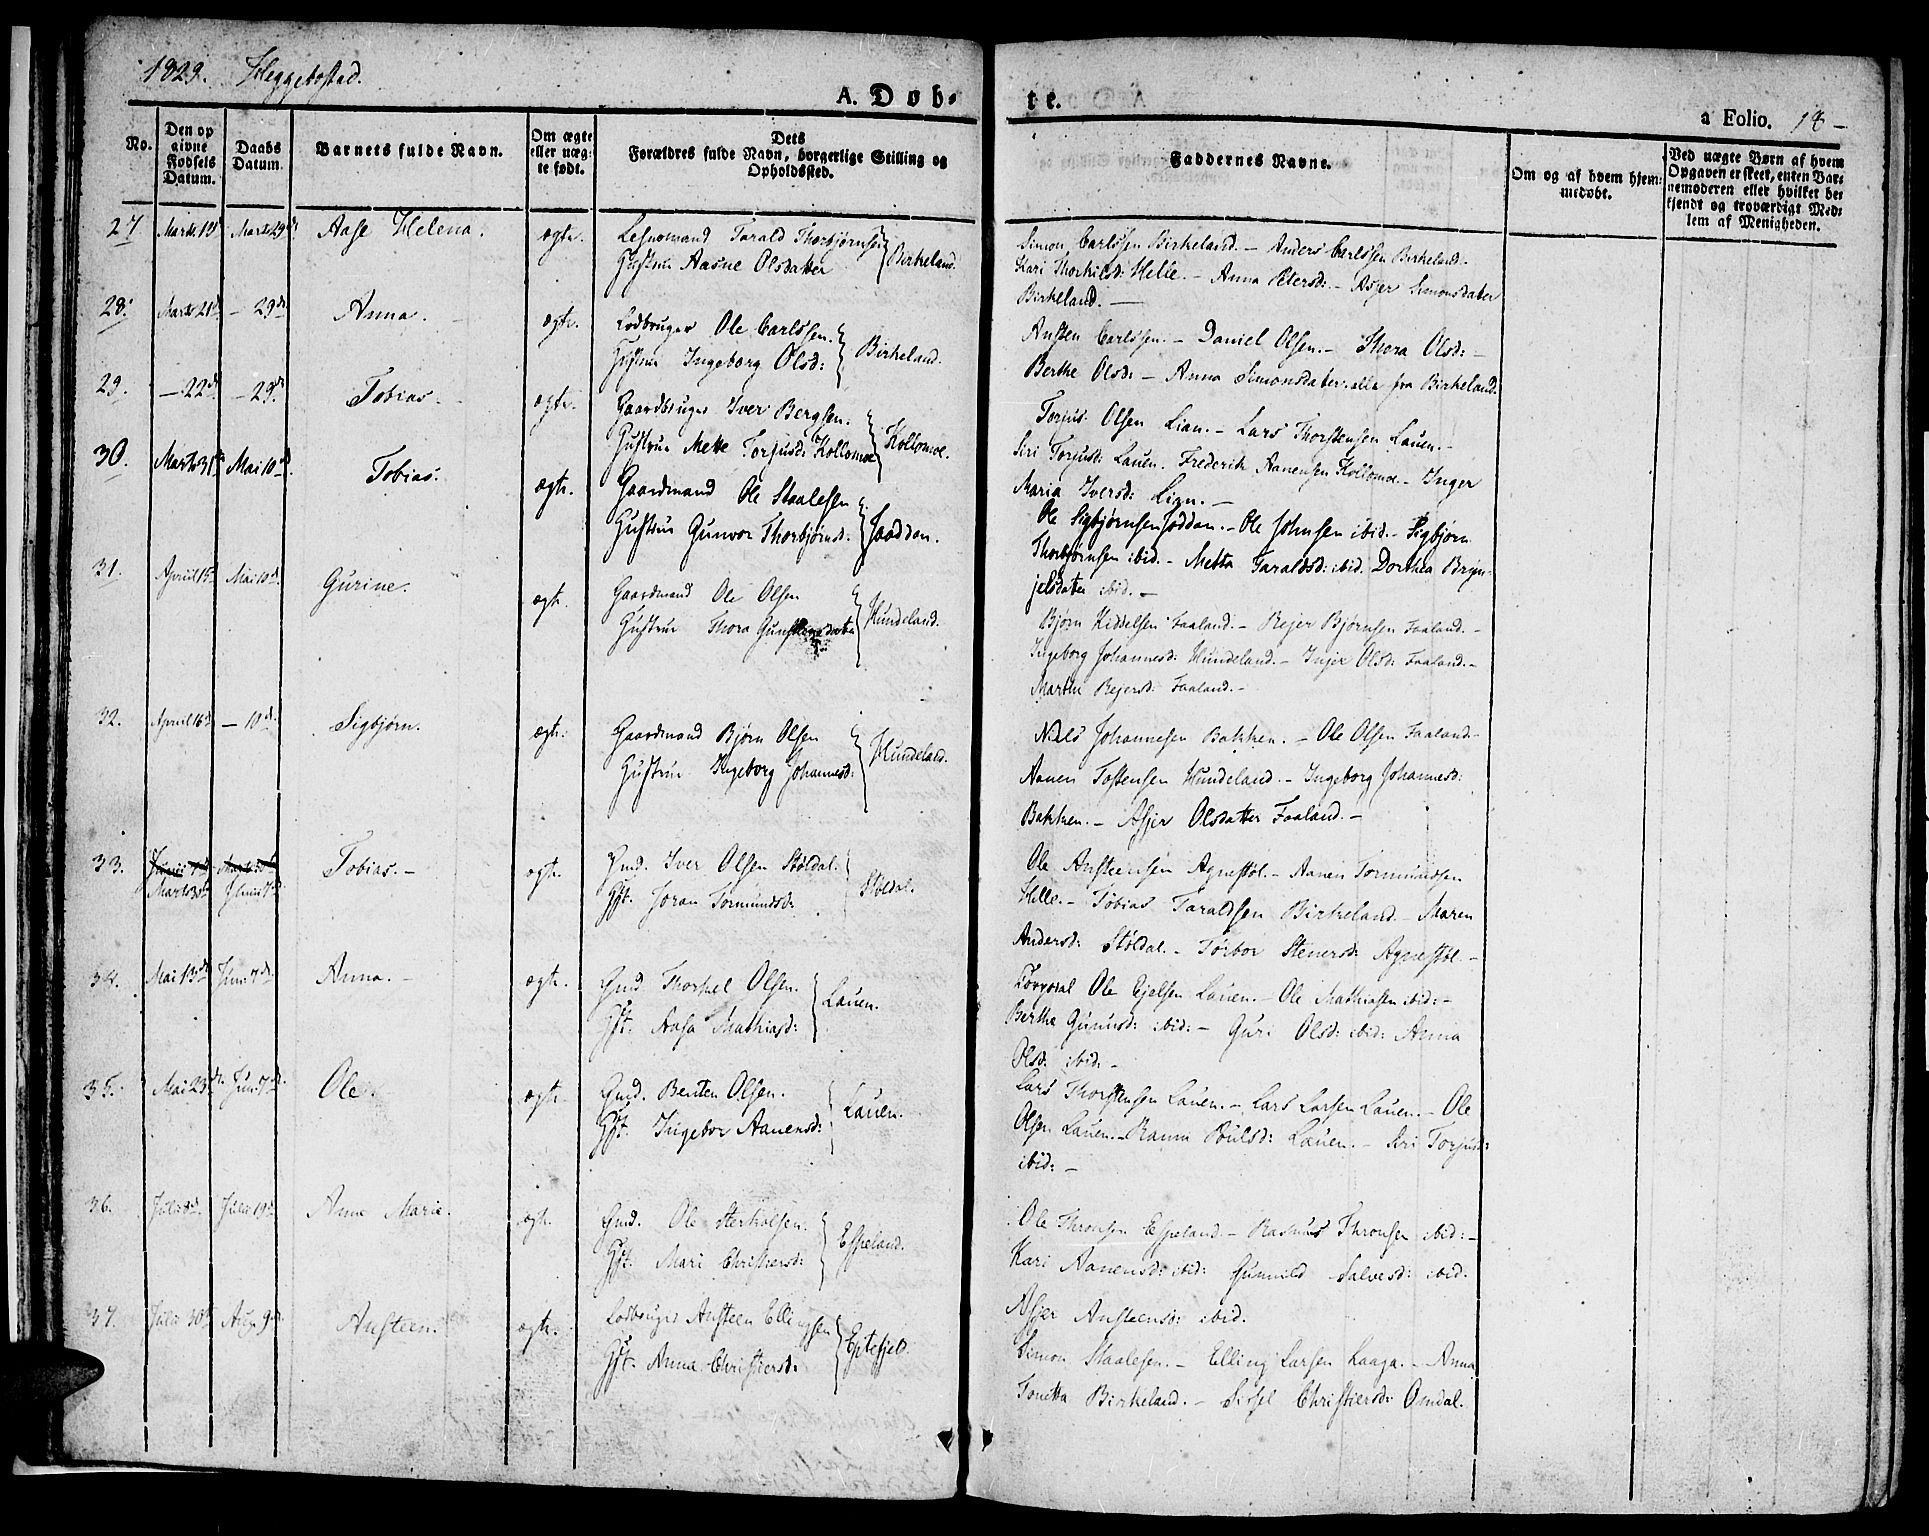 1829. Heggebostad.
A. Døb-
te.
a Folio. 18-
No.
Den op
givne
Fødsels
Datum.
Daabs
Datum.
Barnets fulde Navn.
Om ægte
eller uæg-
te født.
Dets
Forældres fulde Navn, borgerlige Stilling og
Opholdssted.
Faddernes Navne.
Om og af hvem hjem-
medøbt.
Ved uægte Børn af hvem
Opgaven er skeet, enten Bar-
nemoderen eller hvilket be-
kjendt og troværdigt Med-
lem af Menigheden.
27 Marts Marts 29 Aase Helena. ægte. Tarald Thorbjørnsen
Hustrue Aasne Olsdatter } Birkeland.
Simon Carlssen Birkeland. - Anders Carlssen Birkeland. -
Kari Thorkilsd: Helle. - Anna Petersd: - Asjer Simonsdater
Birkeland. -
28. Marts 21d - 29d Anna. - ægte. Lodbruger Ole Carlssen.
Hustrue Ingeborg Olsd: } Birkeland.
Austen Carlssen. - Daniel Olsen. - Thora Olsd: -
Berthe Olsd: - Anna Simonsdater. alle fra Birkeland.
29. - 22d - 29d. Tobias. - ægte. Gaardbruger Iver Bergsen.
Hustrue Mette Torjusd: Kollomoe } Kollomoe.
Torjus Olsen Lian. - Lars Thorstensen Lauen. -
Siri Torjusd: Lauen. Frederik Aanensen Kollomoe. - Inger
Maria Iversd: Lian. -
30. Marts 31 Mai 10d Tobias. ægte. Gaardmand Ole Staalesen
Hustrue Gunvor Thorbjørnsd: }
Ole Sigbjørnsen - Ole Johnsen ibid. - Sigbjørn
Thorbjørnsen ibid. - Metta Taraldsd: ibid. Dorthea Bryn-
jelsdatter ibid. -
31. April 15d Mai 10d. Gurine. ægte. Gaardmand Ole Olsen
Hustrue Thora } Hundeland.
Bjørn Kiddelsen Faaland. - Rejer Bjørnsen Faaland. -
Ingeborg Johannesd: Hundeland. - Injer Olsd: Faaland. -
Marthe Rejersd: Faaland. -
32. April 16d - 10d. Sigbjørn. ægte. Gaardmand Bjørn Olsen
Hustrue Ingeborg Johannesd: } Hundeland.
Niels Johannesen Bakken. - Ole Olsen Faaland -
Aanen Tostensen Hundeland. - Ingeborg Johannesd:
Bakken. - Asjer Olsdatter Faaland. -
33. Marts 30 Junii 7d Tobias. - ægte. Gmd. Iver Olsen Støldal.
Hst. Joran Tormundsd: } Støldal.
Ole Austeensen Agnestøl. - Aanen Tormundsen
Helle. - Tobias Taraldsen Birkeland. - Maren
Andersd: Støldal. - Torbor Stenersd: Agnestøl. -
34. Mai 13d Jun: 7d. Anna. - ægte. Gmd. Thorkel Olsen.
Hst. Aasa Mathiasd: } Lauen.
Corporal Ole Ejelsen Lauen. - Ole Mathiasen ibid: -
Berthe ibid: - Guri Olsd: ibid: Anna
Olsd: ibid: -
35. Mai 23d. Jun: 7d. Ole. ægte. Gmd. Benten Olsen.
Hst. Ingebor Aanensd: } Lauen.
Lars Thorstensen Lauen. - Lars Larsen Lauen. - Ole
Olsen Lauen. - Poulsd: Lauen. - Siri Torjusd:
ibid: -
36. Julii 8d. Julii 19d. Anne Marie. ægte. Gmd. Ole
Hst. Mari Christiersd: } Espeland.
Ole Thronsen Espeland. - Rasmus Thronsen ibid: -
Kari Aanensd: ibid: Gunnild Salvesd: ibid.
Asjer Austeensd: ibid.
37. Julii 30d Aug. 9d. Austeen. ægte. Lodbruger Austeen Ellingsen
Hst. Anna Christiersd: } Eptefjeld.
Simon Staalesen. - Elling Larsen Laaga. - Anna
Tonetta Birkeland. - Sissel Christiersd: Omdal.